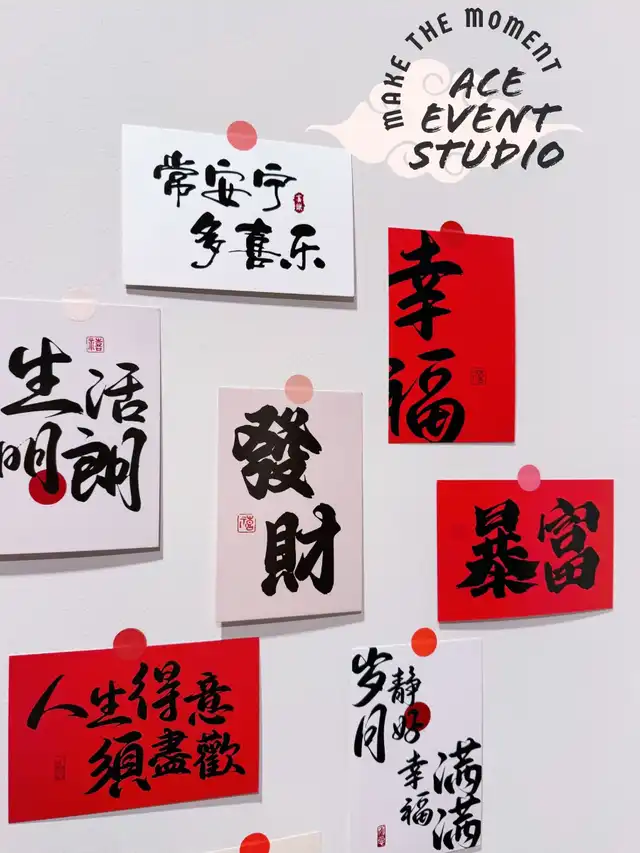 MAKE THE MOMENT
ACE
EVENT
STUDIO
常安宁
多喜乐
幸
福
生活
明朗
發
財
暴富
人生得意
須盡歡
岁月
静好
幸福
满满